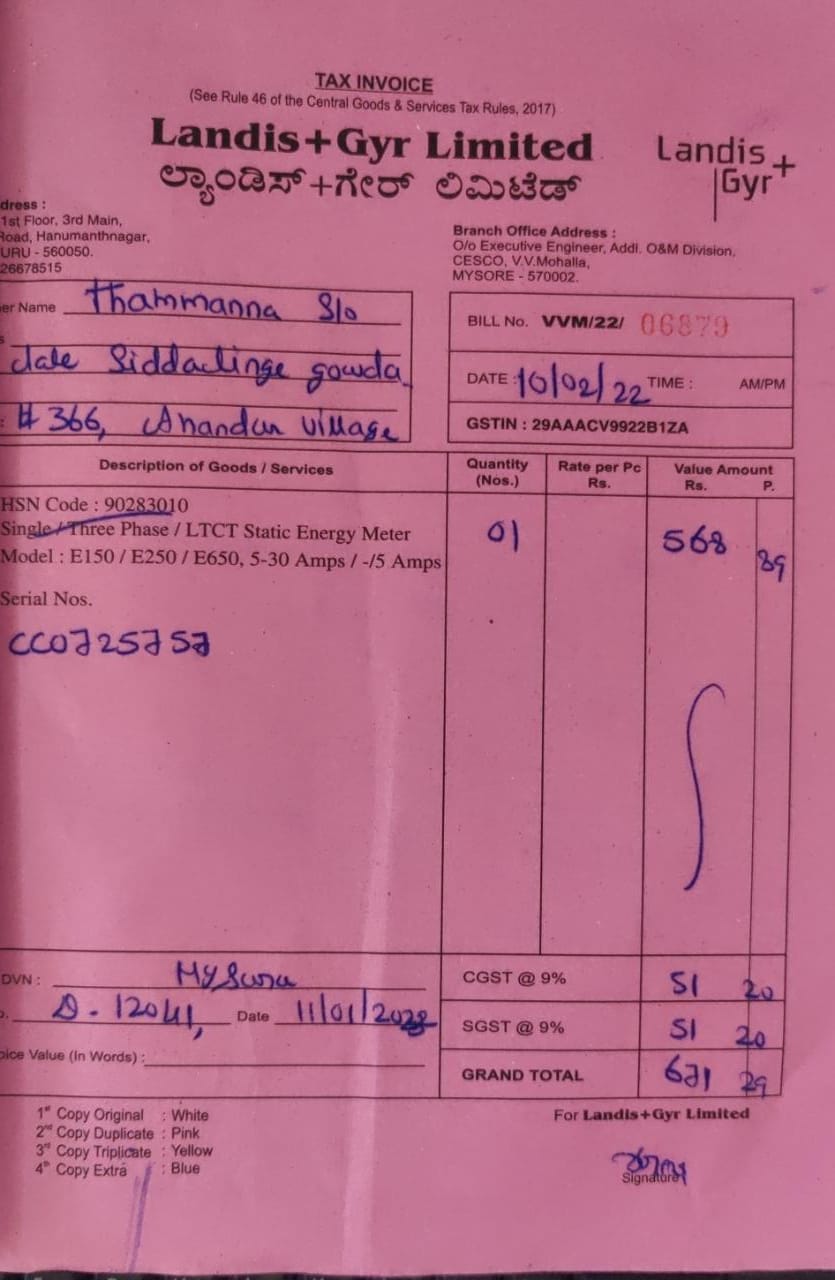 TAX INVOICE
(See Rule 46 of the Central Goods & Services Tax Rules, 2017)
Landis+Gyr Limited
ಲ್ಯಾಂಡಿಸ್+ಗೇರ್ ಲಿಮಿಟೆಡ್
Landis+
Gyr
dress :
1st Floor, 3rd Main,
Road, Hanumanthnagar,
URU - 560050.
26678515
Branch Office Address :
O/o Executive Engineer, Addl. O&M Division,
CESCO, V.V.Mohalla,
MYSORE - 570002.
er Name Thammanna S/o
late Siddalinge gowda
# 366, Anandur village
BILL No. VVM/22/ 06879
DATE : 10/02/22 TIME : AM/PM
GSTIN : 29AAACV9922B1ZA
Description of Goods / Services
Quantity (Nos.)
Rate per Pc Rs.
Value Amount Rs. P.
HSN Code : 90283010
Single / Three Phase / LTCT Static Energy Meter
Model : E150 / E250 / E650, 5-30 Amps / -/5 Amps
01 568 89
Serial Nos.
CC0725757
DVN : Mysuru
D - 12041, Date 11/01/2022
oice Value (In Words) :
CGST @ 9% 51 20
SGST @ 9% 51 20
GRAND TOTAL 671 29
1st Copy Original : White
2nd Copy Duplicate : Pink
3rd Copy Triplicate : Yellow
4th Copy Extra : Blue
For Landis+Gyr Limited
Signature